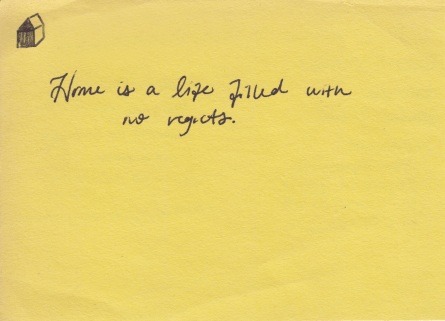 Home is a life filled with
no regrets.